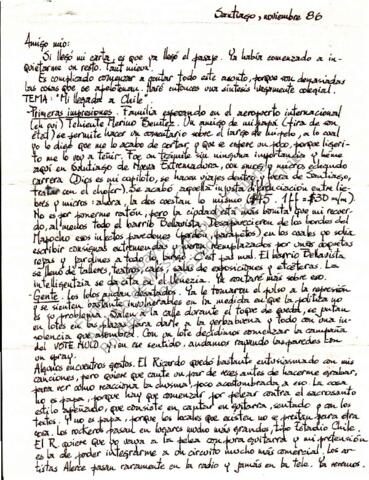 Santiago, noviembre 86
Amigo mío:
Si llegó mi carta, es que ya llegó el pasaje. Ya había comenzado a in-
quietarme un resto. Tant mieux!
Es complicado comenzar a contar todo este asunto, porque son demasiadas
las cosas que se apelotonan. Haré entonces una síntesis vagamente colegial.
TEMA: "Mi llegada a Chile"
Primeras impresiones. Familia esperando en el aeropuerto internacional
(eh pui) Teniente Merino Benítez. Un amigo de mi papá (tira de son
état) se permite hacer un comentario sobre el largo de mi pelo, a lo cual
yo le digo que me lo acabo de cortar y que se espere un poco, porque ligerito
me lo voy a teñir. Fue un trámite sin ninguna importancia y heme
aquí en Santiago de Nueva Extremadura, con micros y liebres echando
carrera (Dios es mi copiloto, se hacen viajes dentro y fuera de Santiago,
tratar con el chofer). Se acabó aquella injusta diferenciación entre lie-
bres y micros: ahora, la dos cuestan lo mismo ($45. 1 ff = $30 m/m).
No es por ponerme ratón, pero la ciudad está más bonita que mi recuer-
do, al menos todo el barrio Bellavista. Desaparecieron de los bordes del
Mapocho esos infectos pardeones (perdón, parapetos) en los cuales yo solía
escribir consignas extremeñas y fueron reemplazados por unas coquetas
rejas y jardines a todo lo largo. C'est pal mal. El barrio Bellavista
se llenó de talleres, teatros, cafés, salas de exposiciones y etcéteras. La
intelligentzia se da cita en el Venezia. Ya contaré más sobre eso.
Gente. Los lolos andan desatados. Ya le tomaron el pulso a la represión
y se sienten bastante invulnerables en la medida en que la política no
es su problema. Salen a la calle durante el toque de queda, se juntan
en lotes en las plazas para darle a la yerbabuena y todo con una in-
solencia que asombra. Con un lote decidimos comenzar la campaña
del VOTE NULO y, en ese sentido, andamos rayando las paredes con
un spray.
Algunos encuentros gentes. El Ricardo quedó bastante entusiasmado con mis
canciones, pero quiere que cante un par de veces antes de hacerme grabar,
para ver cómo reacciona la chusma, poco acostumbrada a eso. La cosa
no es papa, porque hay que comenzar por pelear contra el sacrosanto
estilo apeñado, que consiste en cantar en guitarra, sentado y con los
textos. Y no es papa, porque los locales que existen no se prestan para otra
cosa. Los rockeros pasan en lugares mucho más grandes, tipo Estadio Chile.
El R. quiere que yo vaya a la pelea con pura guitarra y mi pretensión
es la de poder integrarme a un circuito mucho más comercial. Los ar-
tistas Alerce pasan raramente en la radio y jamás en la tele. Ya veremos.